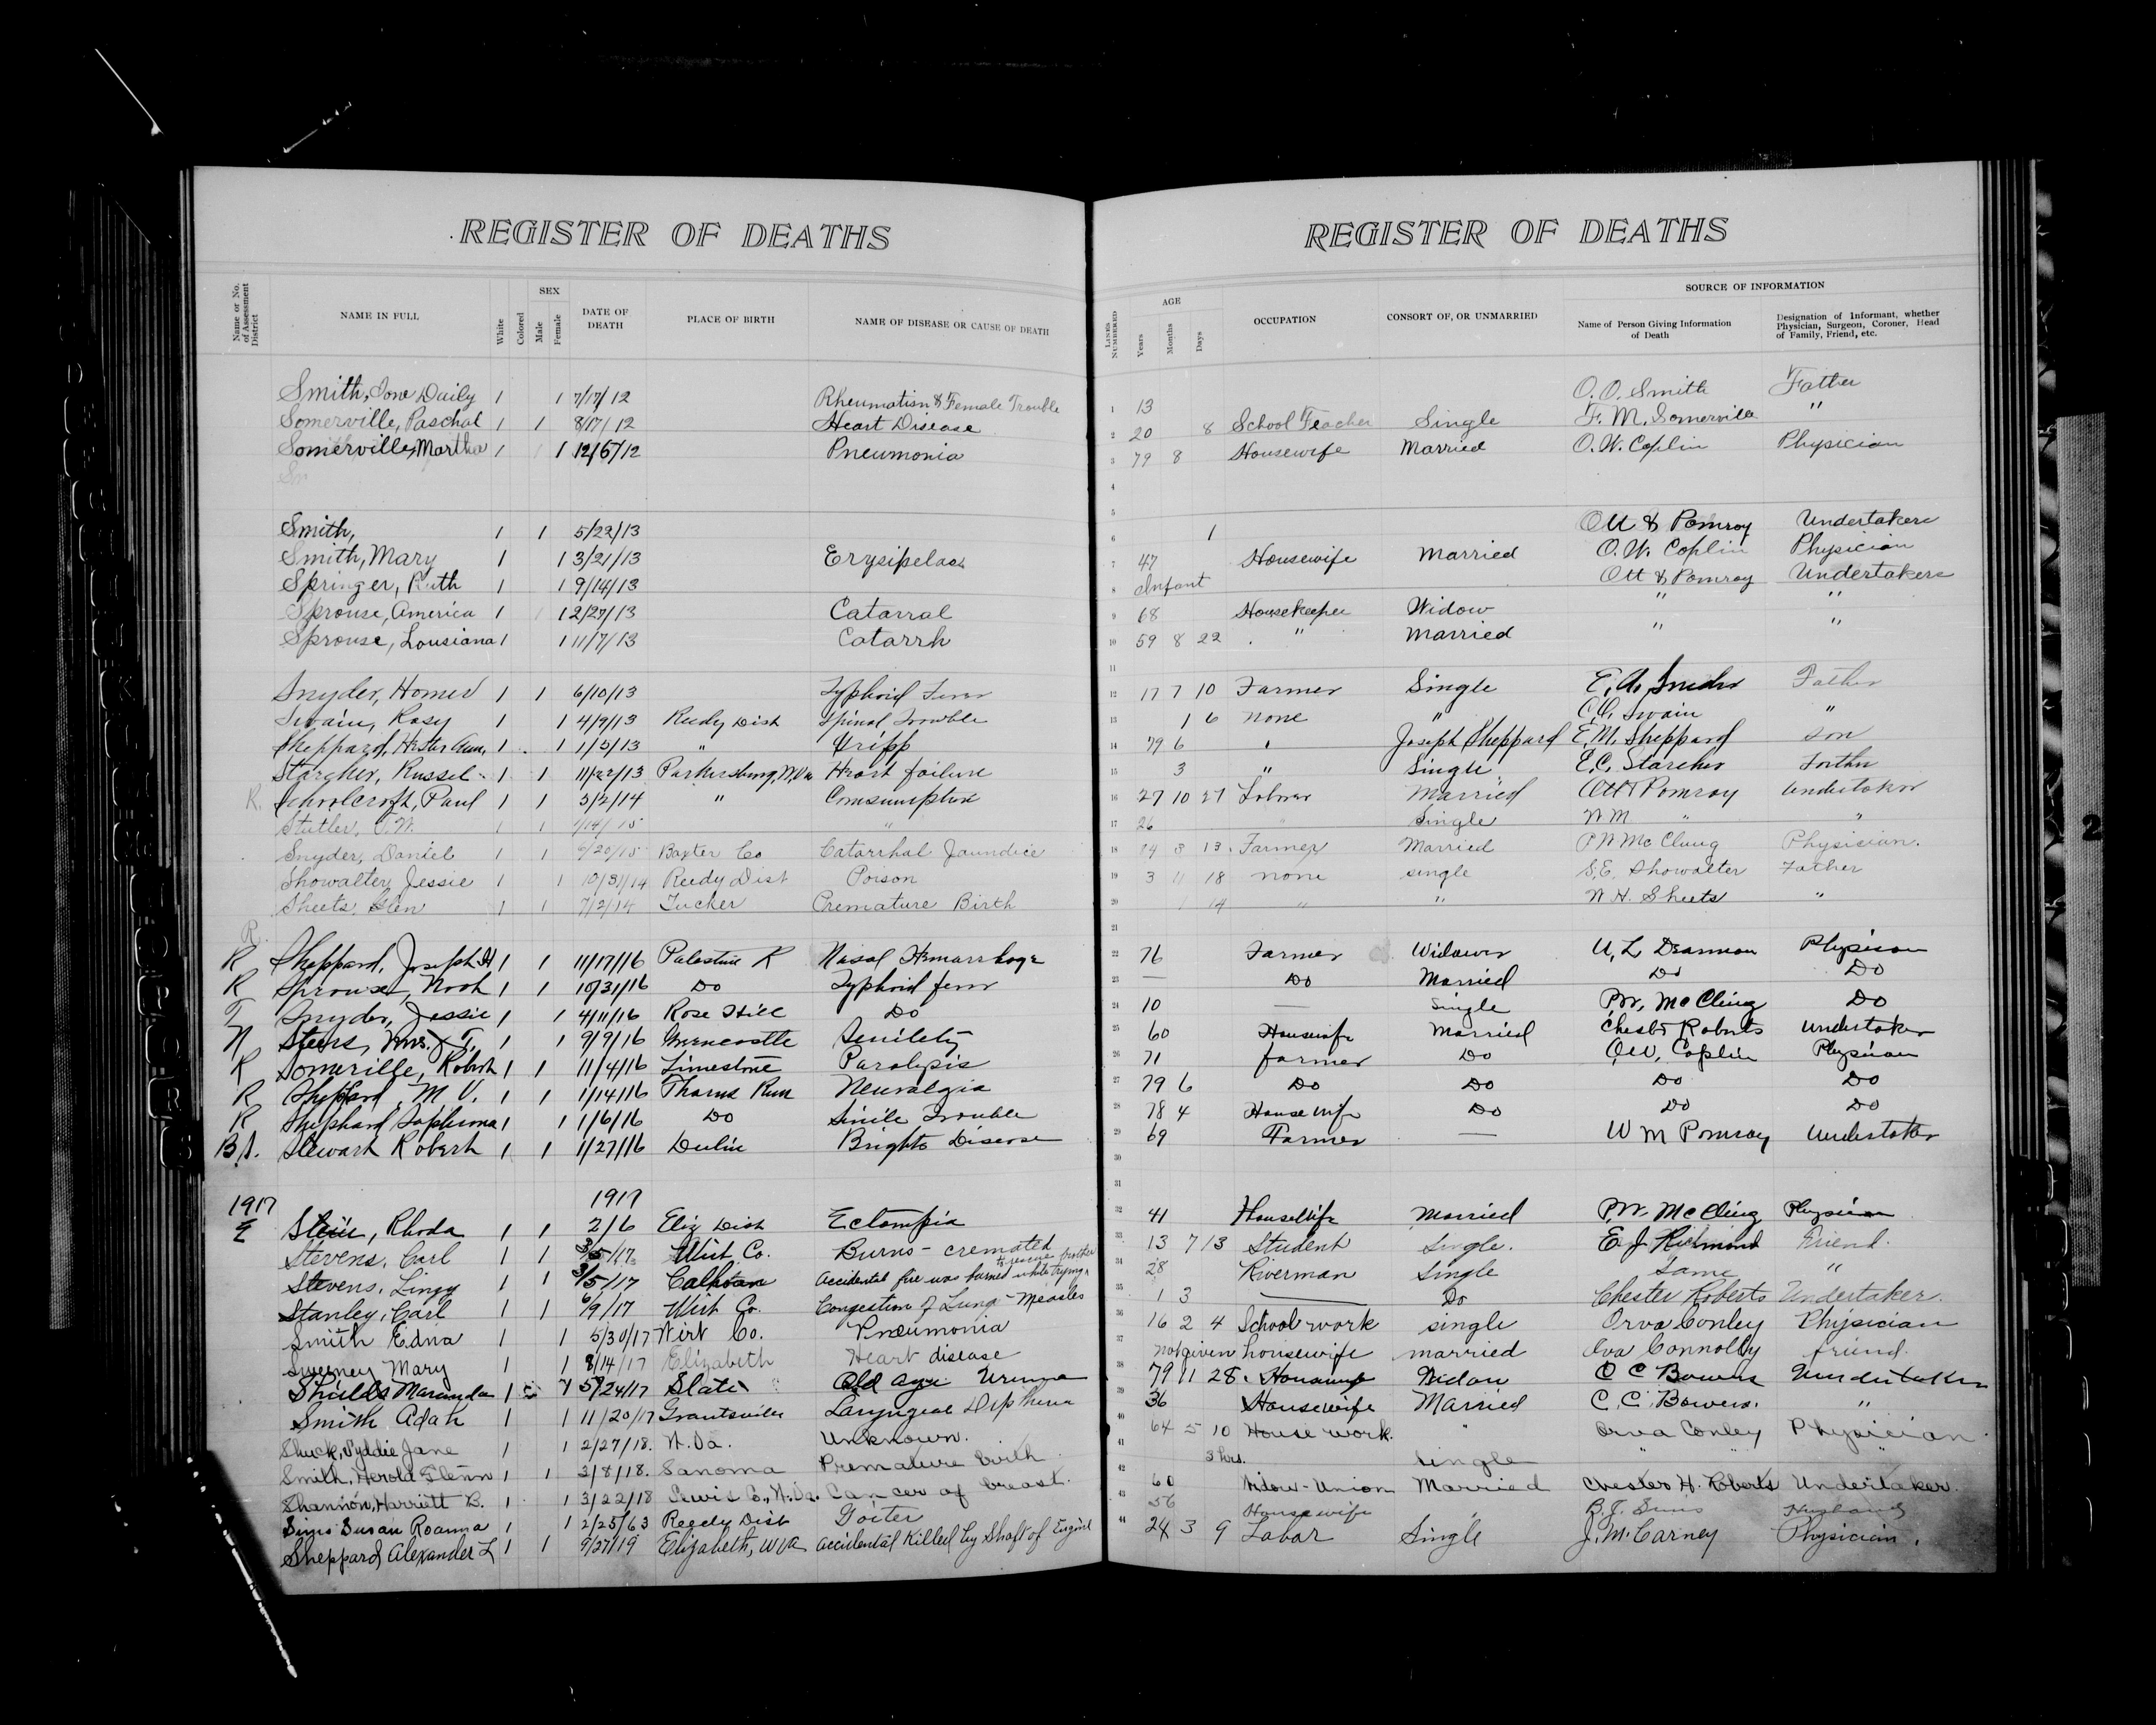 REGISTER OF DEATHS
Name or No. of Assessment District
NAME IN FULL
White
Colored
SEX
Male
Female
DATE OF DEATH
PLACE OF BIRTH
NAME OF DISEASE OR CAUSE OF DEATH
Smith, Ione Daily 1 1 7/17/12 Rheumatism & Female Trouble
Somerville, Paschal 1 1 8/17/12 Heart Disease
Somerville, Martha 1 1 12/6/12 Pneumonia
Smith, 1 1 5/22/13
Smith, Mary 1 1 3/21/13 Erysipelas
Springer, Ruth 1 1 9/14/13
Sprouse, America 1 1 2/27/13 Catarral
Sprouse, Lousiana 1 1 11/7/13 Catarrh
Snyder, Homer 1 1 6/10/13 Typhoid Fever
Swain, Rosy 1 1 4/9/13 Reedy Dist Spinal Trouble
Sheppard, Hester Ann, 1 1 1/5/13 " Gripp
Starcher, Russel 1 1 11/22/13 Parkersburg, W.Va Heart failure
R. Schoolcroft, Paul 1 1 3/2/14 " Consumption
Stutler, 1 1 "
Snyder, Daniel 1 1 /20/15 Baxter Co Catarrhal Jaundice
Showalter, Jessie 1 1 10/31/14 Reedy Dist Poison
Sheets, Glen 1 1 7/2/14 Tucker Premature Birth
R.
R Sheppard, Joseph H 1 1 11/17/16 Palestine R Nasal Hemarrhage
R Sprouse, Noah 1 1 10/31/16 Do Typhoid fever
T Snyder, Jessie 1 1 4/11/16 Rose Hill Do
N Steers, Mrs. J. T. 1 1 9/9/16 Greencastle Senility
R Somerville, Robert 1 1 11/4/16 Limestone Paralysis
R Sheppard, M V. 1 1 1/14/16 Thorns Run Neuralgia
R Shephard Sophrona 1 1 1/6/16 Do Sinile Trouble
B.S. Stewart Robert 1 1 1/27/16 Dulin Brights Disease
1917 1917
E Rhoda 1 1 2/6 Eliz Dist Eclampia
Stevens, Carl 1 1 3/5/17 Wirt Co. Burns - cremated
Stevens, Lingy 1 1 3/5/17 Calhoun Accidental fire was burned while trying to rescue brother
Stanley, Carl 1 1 6/9/17 Wirt Co. Congestion of Lung - Measles
Smith Edna 1 1 5/30/17 Wirt Co. Pneumonia
Sweeney Mary 1 1 8/14/17 Elizabeth Heart disease
Shields Marinda 1 1 5/24/17 State Old Age
Smith Adah 1 1 11/20/17 Grantsville Laryngeal Diptheria
Shuck, Jane 1 1 2/27/18. W. Va. Unknown.
Smith, Herold Glenn 1 1 3/8/18. Sanoma Premature birth
Shannon, Harriett B. 1 1 3/22/18 Lewis Co., W. Va. Cancer of breast.
Sims Susan Roanna 1 1 2/25/63 Reedy Dist Goiter
Sheppard, Alexander L 1 1 9/27/19 Elizabeth, W VA accidental Killed by Shaft of Engine
REGISTER OF DEATHS
LINES NUMBERED
AGE
Years
Months
Days
OCCUPATION
CONSORT OF, OR UNMARRIED
SOURCE OF INFORMATION
Name of Person Giving Information of Death
Designation of Informant, whether Physician, Surgeon, Coroner, Head of Family, Friend, etc.
1 13 O. O. Smith Father
2 20 8 School Teacher Single F. M. Somerville "
3 79 8 Housewife Married O. W. Coplin Physician
4
5
6 1 Ott & Pomroy Undertakers
7 47 Housewife Married O. W. Coplin Physician
8 Infant Ott & Pomroy Undertakers
9 68 Housekeeper Widow " "
10 59 8 22 " Married " "
11
12 17 7 10 Farmer Single E. A. Snider Father
13 1 6 None " Swain "
14 79 6 " Joseph Sheppard E. M. Sheppard Son
15 3 " Single E. C. Starcher Father
16 27 10 27 Labrer Married Ott & Pomroy Undertaker
17 26 " Single W M " "
18 3 13 Farmer Married P W McClung Physician.
19 3 11 18 None single S. E. Showalter Father
20 1 14 " " W. H. Sheets "
21
22 76 Farmer Widower Physician
23 — Do Married Do Do
24 10 — Single P.W. McClung Do
25 60 Housewife Married Chester Roberts Undertaker
26 71 farmer Do O.W. Coplin Physician
27 79 6 Do Do Do Do
28 78 4 Housewife Do Do Do
29 69 Farmer — W M Pomroy Undertaker
30
31
32 41 Housewife Married P.W. McClung Physician
33 13 7 13 Student Single. E. J. Richmond Friend.
34 28 Riverman Single Same "
35 1 3 — Do Chester Roberts Undertaker.
36 16 2 4 School work single Orva Conley Physician
37 not given housewife married Iva Connolly friend.
38 79 11 28. Housewife Widow C C Bowers Undertaker
39 36 Housewife Married C. C. Bowers. "
40 64 5 10 House work. " Orva Conley Physician
41 3 hrs. Single " "
42 60 Married Chester H. Roberts Undertaker.
43 56 Housewife B. J. Sims Husband
44 24 3 9 Labor Single J. M. Carney Physician.
2